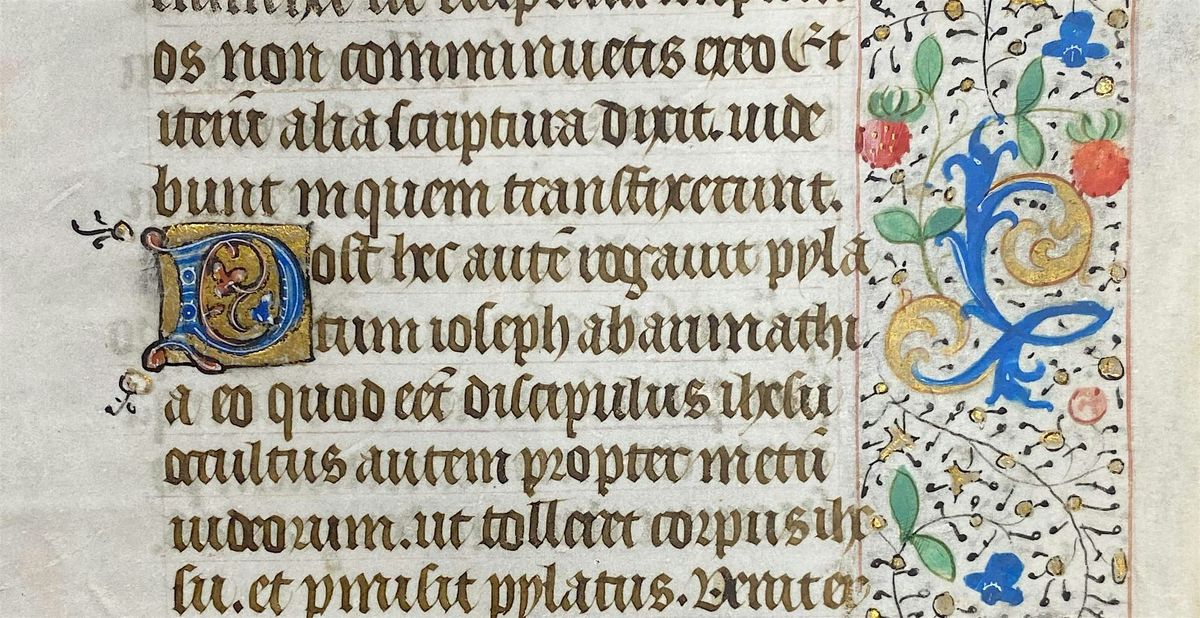 os non comminuetis exeo Et
iterū alia scriptura dixit. uide
bunt in quem transfixerunt.
Post hec autē rogauit pyla
tum ioseph ab arimathi
a eo quod eēt discipulus ihesu
occultus autem propter metū
iudeorum. ut tolleret corpus ihe
su. et pmisit pylatus. Venit er